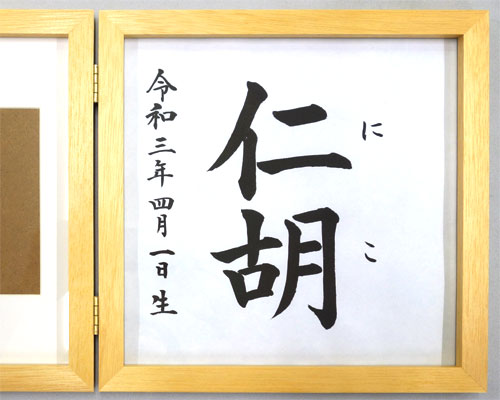 にこ
仁胡
令和三年四月一日生